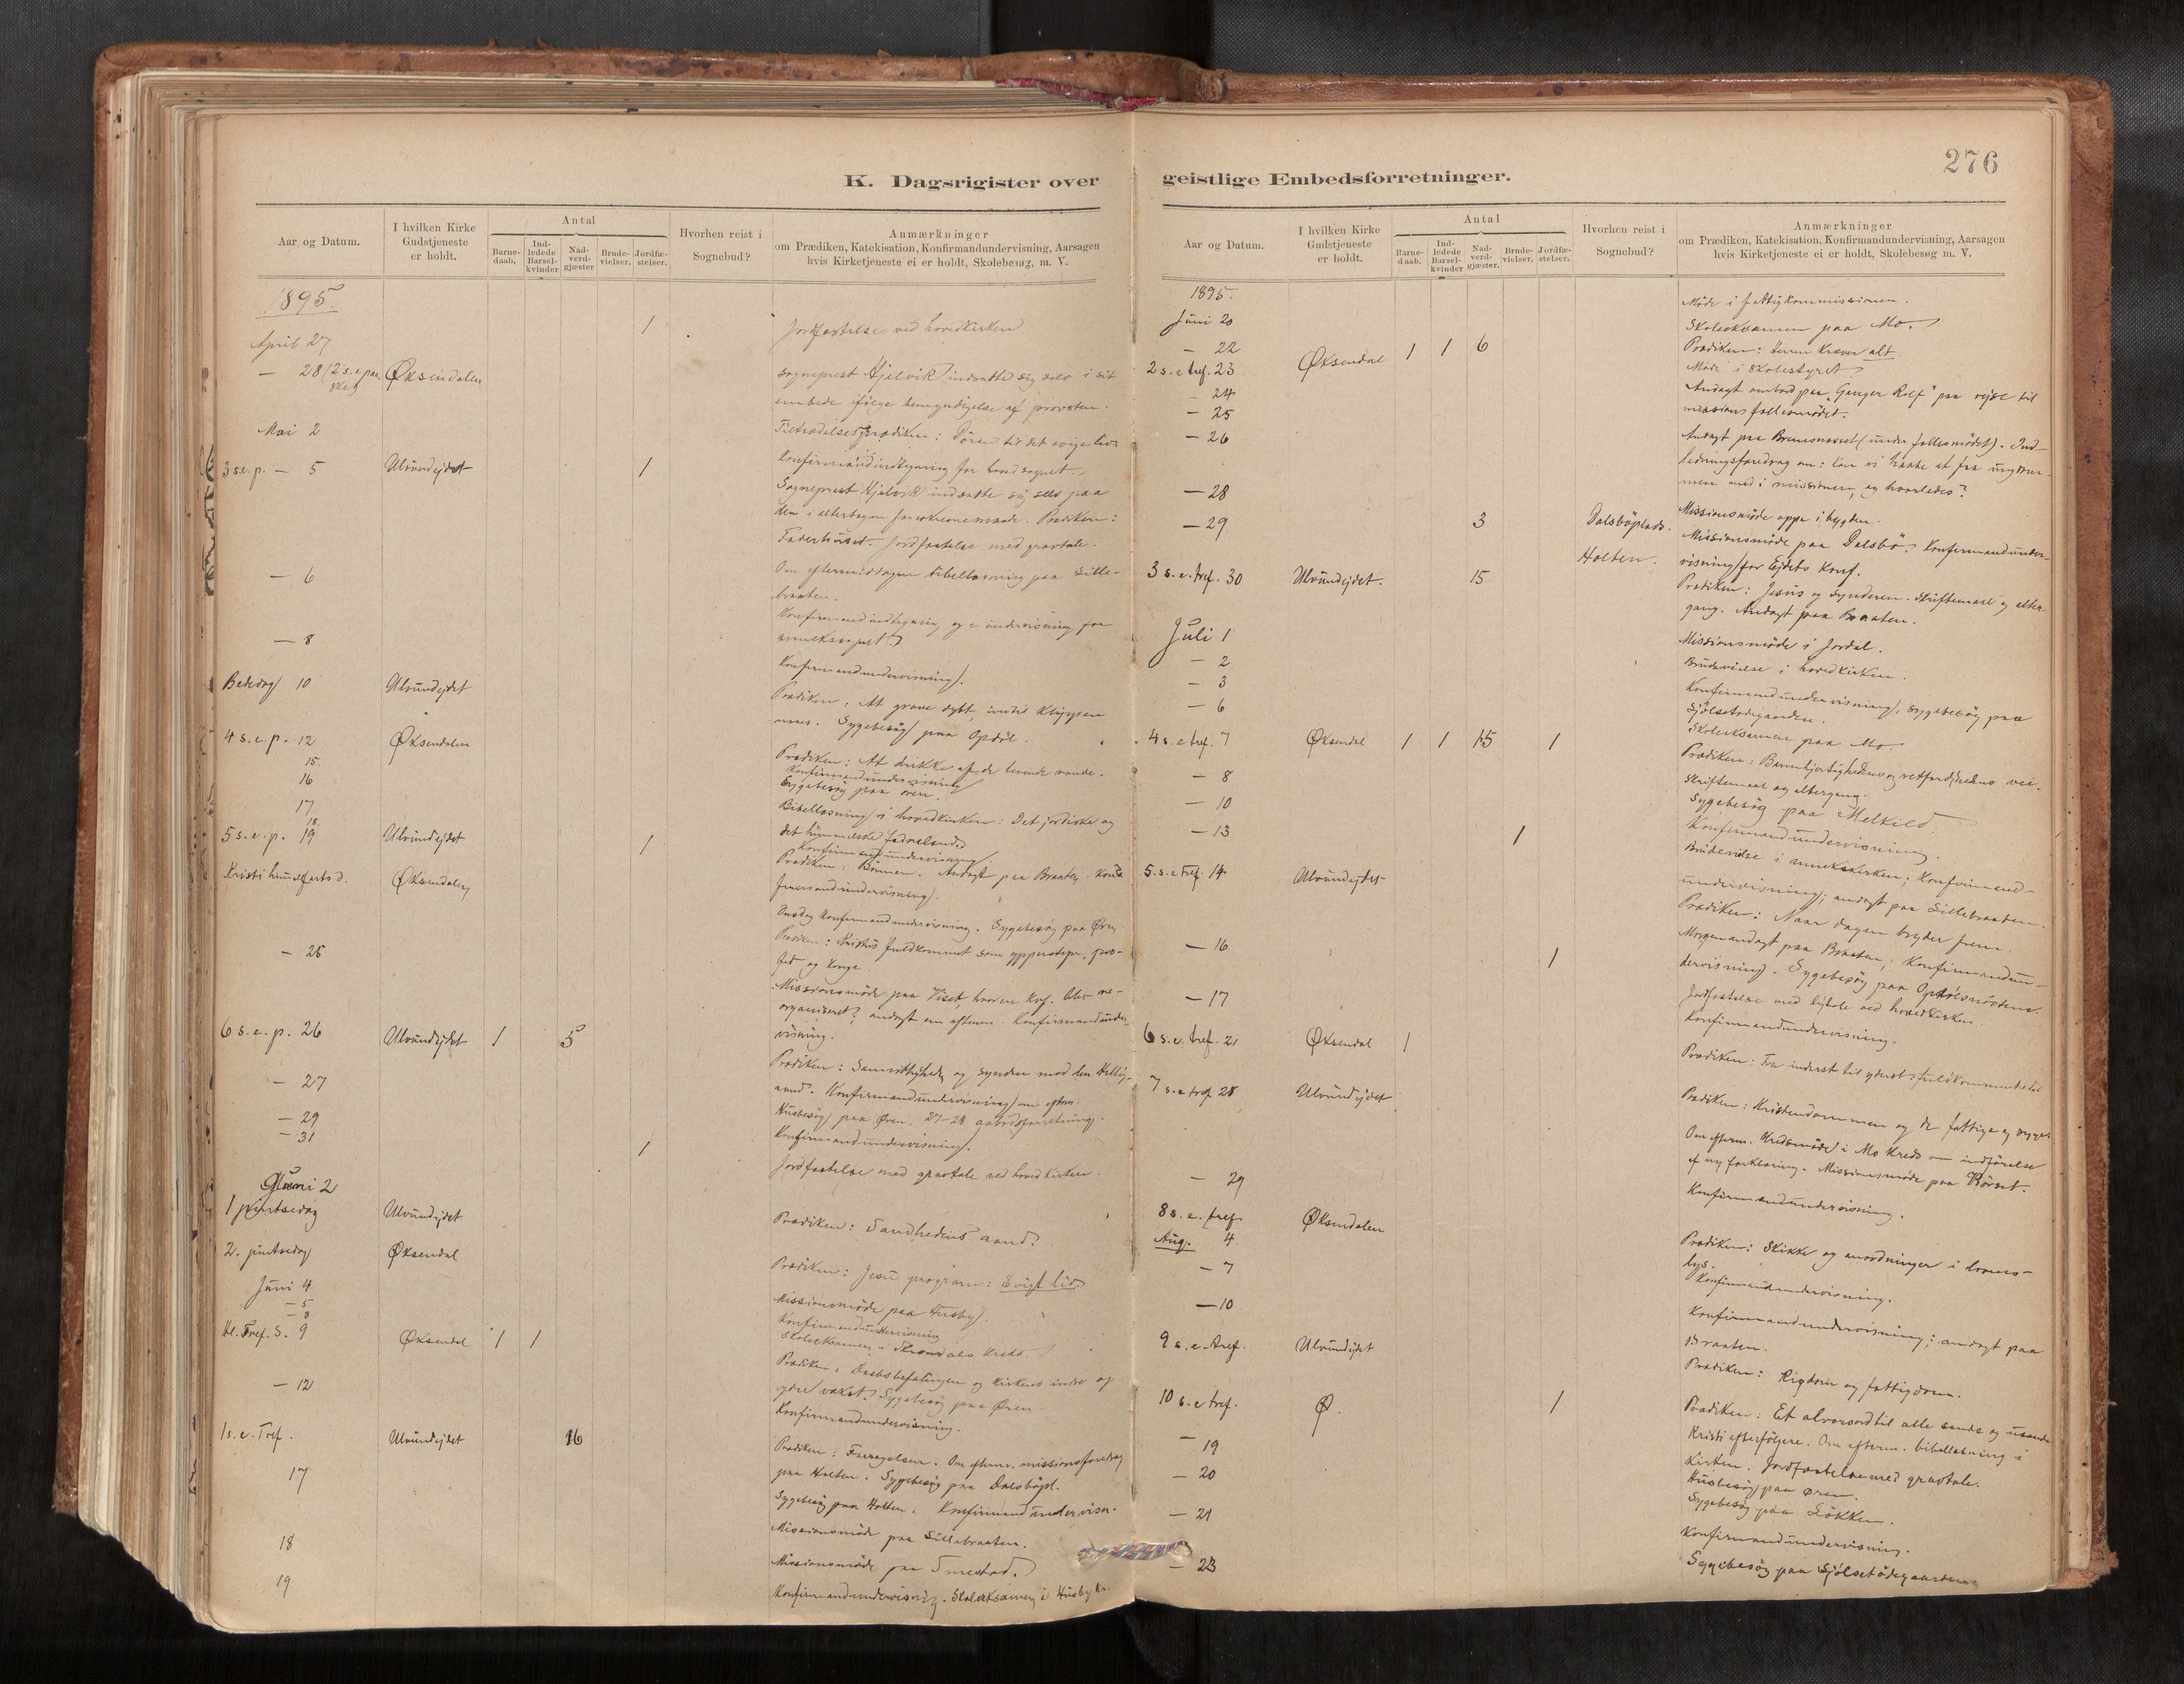 K. Dagsrigister over
Aar og Datum.
I hvilken Kirke Gudstjeneste er holdt.
Antal
Barne-daab.
Ind-ledede Barsel-kvinder
Nad-verd-gjæster
Brude-vielser.
Jordfæ-stelser.
Hvorhen reist i Sognebud?
Anmærkninger
om Prædiken, Katekisation, Konfirmandundervisning, Aarsagen
hvis Kirketjeneste ei er holdt, Skolebesøg, m. V.
1895.
April 27 1 Jordfæstelse ved hovedkirken
— 28 (2 s. e. paaske) Øksendalen sogneprest Hjelvik indsatte sig selv i sit
embede ifølge bemyndigelse af provsten.
Tiltrædelsesprædiken: Døren til det evige liv.
Mai 2 Konfirmandindtegning for hovedsognet.
3 s. e. p. — 5 Ulvundejdet 1 Sogneprest Hjelvik indsatte sig selv paa
Prædiken:
Faderhuset. Jordfæstelse med gravtale.
Om eftermiddagen bibellæsning paa Lille-
braaten.
— 6 Konfirmandindtegning og - undervisning for
annekssognet.
— 8 Konfirmandundervisning.
Bededag 10 Ulvundejdet Prædiken: At grave dybt, indtil klippen
Sygebesøg paa Opdøl.
4 s. e. p. 12 Øksendalen Prædiken: At drikke af de levende vande.
15. Konfirmandundervisning
16 Sygebesøg paa Øren.
17 Bibellæsning i hovedkirken: Det jordiske og
det himmelske fædreland.
18. Konfirmandundervisning.
5 s. e. p. 19 Ulvundejdet 1 Prædiken: Bønnen. Andagt paa Braaten. Kon-
firmandundervisning.
Kristi himmelfartsd. Øksendalen Onsdag konfirmandundervisning. Sygebesøg paa Øren.
Prædiken: Kristus fuldkommet som ypperstepr., pro-
fet og konge.
— 25 Missionsmøde paa Viset, hvor en kvf. blev re-
organiseret; andagt om aftenen. Konfirmandunder-
visning.
6 s. e. p. 26 Ulvundejdet 1 5 Prædiken: Samvittighed og synden mod den Hellig-
aand. Konfirmandundervisning om efterm.
— 27 Husbesøg paa Øren. 27-28 aabodsforretning.
— 29 Konfirmandundervisning.
— 31 1 Jordfæstelse med gravtale ved hovedkirken.
Juni 2
1 pintsedag Ulvundejdet Prædiken: Sandhedens aand.
2. pintsedag Øksendal Prædiken: Jesu program: Evigt liv.
Juni 4 Missionsmøde paa Husby.
— 5 Konfirmandundervisning
— 8 Skoleeksamen i kreds.
Hl. Tref. S. 9 Øksendal 1 1 Prædiken: Daabsbefalingen og kirkens indre og
ydre vækst. Sygebesøg paa Øren
— 12 Konfirmandundervisning.
1 s. e. Tref. Ulvundejdet 16 Prædiken: Fornægelsen. Om efterm. missionsforedrag
paa Holten. Sygebesøg paa Dalsbøpl.
17 Sygebesøg paa Holten. Konfirmandundervisn.
Missionsmøde paa Lillebraaten.
18 Missionsmøde paa Smestad.
19 Konfirmandundervisnig. Skoleeksamen i Husby kr.
276
geistlige Embedsforretninger.
Aar og Datum.
I hvilken Kirke Gudstjeneste er holdt.
Antal
Barne-daab.
Ind-ledede Barsel-kvinder
Nad-verd-gjæster.
Brude-vielser.
Jordfæ-stelser.
Hvorhen reist i Sognebud?
Anmærkninger
om Prædiken, Katekisation, Konfirmandundervisning, Aarsagen
hvis Kirketjeneste ei er holdt, Skolebesøg m. V.
1895.
Juni 20 Møde i fattigkommissionen.
— 22 Skoleeksamen paa Mo.
2 s. e. tref. 23 Øksendal 1 1 6 Prædiken: Herren kræver alt
— 24 Møde i skolestyret
— 25 Andagt ombord paa "Ganger Rolf" paa rejse til
missionsfællesmødet.
— 26 Andagt paa Bremsnesset (under fællesmødet). Ind-
ledningsforedrag om: Kan vi haabe at faa ungdom-
men med i missionen, og hvorledes?
— 28 Missionsmøde oppe i bygden.
— 29 3 Dalsbøplads. Missionsmøde paa Dalsbø. Konfirmandunder-
Holten. visning for Ejdets konf.
3 s. e. tref. 30 Ulvundejdet. 15 Prædiken: Jesus og synderen. Skriftemaal og alter-
gang. Andagt paa Braaten.
Juli 1 Missionsmøde i Jordal.
— 2 Brudevielse i hovedkirken.
— 3 Konfirmandundervisning, sygebesøg paa
Sjølsetødegaarden.
— 6 Skoleeksamen paa Mo.
4 s. e. tref. 7 Øksendal 1 1 15 1 Prædiken: Barmhjertighedens og retfærdighedens vei.
Skriftemaal og altergang.
— 8 Sygebesøg paa Melkild.
— 10 Konfirmandundervisning.
— 13 1 Brudevielse i annekskirken; konfirmand-
undervisning; andagt paa Lillebraaten.
5. s. e. tref. 14 Ulvundejdet Prædiken: Naar dagen bryder frem.
— 16 Morgenandagt paa Braaten; konfirmandun-
dervisning. Sygebesøg paa
1 Jordfæstelse med ligtale ved hovedkirken.
— 17 Konfirmandundervisning.
6 s. e. tref. 21 Øksendal 1 Prædiken: Fra inderst til yderst: fuldkommenhed
7 s. e. tref 28 Ulvundejdet Prædiken: Kristendommen og de fattige og syge.
Om efterm. kredsmøde i Mo kreds om indførelse
af ny forklaring. Missionsmøde paa Børset.
— 29 Konfirmandundervisning.
8 s. e. tref. Øksendalen
Aug. 4. Prædiken: Skikke og anordninger i korsets
lys.
— 7 Konfirmandundervisning.
— 10 Konfirmandundervisning; andagt paa
Braaten.
9 s. e. tref. Ulvundejdet Prædiken: Rigdom og fattigdom.
10 s. e. tref. Ø. 1 Prædiken: Et alvorsord til alle sande og usande
Kristi efterfølgere. Om efterm. bibellæsning i
kirken. Jordfæstelse med gravtale.
— 19 Husbesøg paa Øren.
— 20 Sygebesøg paa Løkken.
— 21 Konfirmandundervisning.
— 23 Sygebesøg paa Sjølsetødegaarden